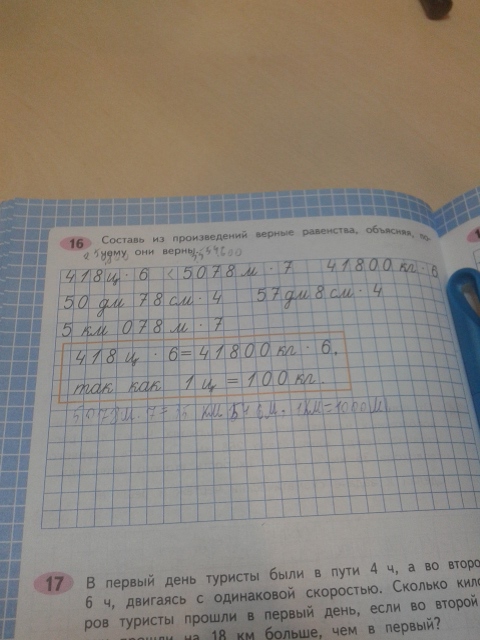 16 Составь из произведений верные равенства, объясняя, по-
чему они верны.
418 ц · 6 < 5078 м · 7 41800 кг · 6
50 дм 78 см · 4 57 дм 8 см · 4
5 км 078 м · 7
418 ц · 6 = 41800 кг · 6,
так как 1 ц = 100 кг.
5078 м · 7 = 35 км 546 м. 1 км = 1000 м
17 В первый день туристы были в пути 4 ч, а во второ
6 ч, двигаясь с одинаковой скоростью. Сколько кило
ров туристы прошли в первый день, если во второй
прошли на 18 км больше, чем в первый?